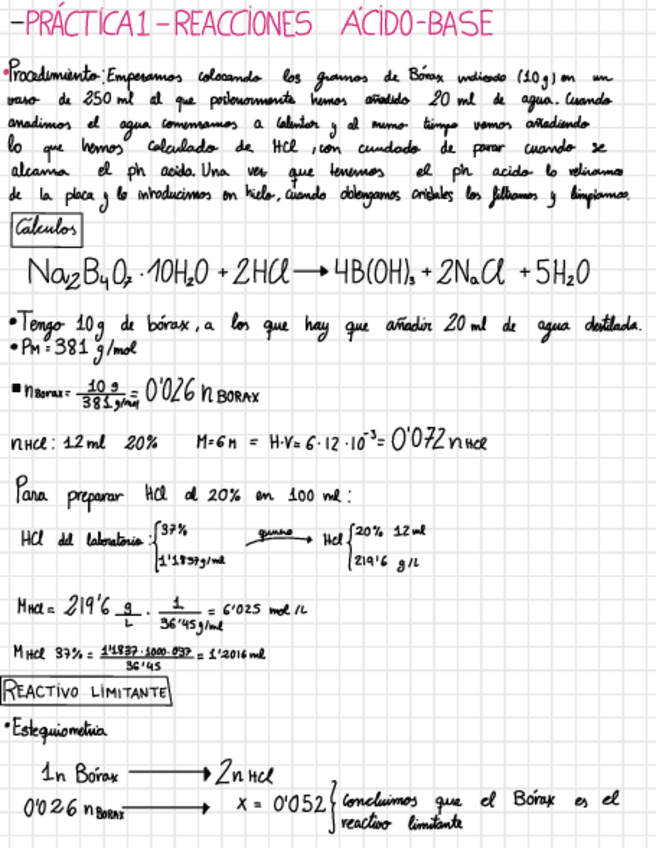 -PRÁCTICA 1 - REACCIONES ÁCIDO-BASE
•Procedimiento: Empezamos colocando los gramos de Bórax indicado (10g) en un
vaso de 250 ml al que posteriormente hemos añadido 20 ml de agua. Cuando
anadimos el agua comenzamos a calentar y al mismo tiempo vamos añadiendo
lo que hemos calculado de HCl, con cuidado de parar cuando se
alcanza el ph acido. Una vez que tenemos el ph acido lo retiramos
de la placa y lo introducimos en hielo, cuando obtengamos cristales los filtramos y limpiamos.
Cálculos
Na₂B₄O₇ · 10H₂O + 2HCl → 4B(OH)₃ + 2NaCl + 5H₂O
•Tengo 10g de bórax, a los que hay que añadir 20 ml de agua destilada.
•PM = 381 g/mol
▪ nBorax = 10 g / 381 g/mol = 0'026 n BORAX
nHCl: 12 ml 20% M=6M = M·V = 6·12·10⁻³ = 0'072 n HCl
Para preparar HCl al 20% en 100 ml:
HCl del laboratorio: { 37% 1'1837g/ml → HCl { 20% 12 ml 219'6 g/L
MHCl = 219'6 g/L · 1 / 36'45g/ml = 6'025 mol/L
MHCl 37% = 1'1837·1000·037 / 36'45 = 1'2016 ml
REACTIVO LIMITANTE
•Estequiometria
1n Bórax → 2n HCl
0'026 n BORAX → x = 0'052 } Concluimos que el Bórax es el
reactivo limitante